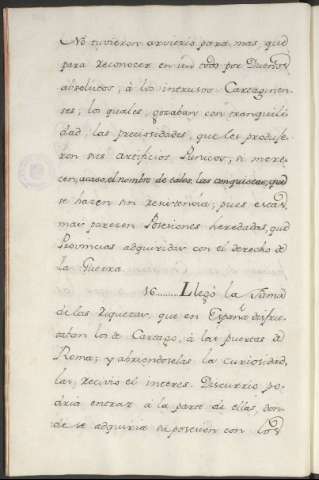 No tuvieron arvitrio para mas, que
para reconocer en un todo por Dueños
absolutos, á los intrusos Cartaginen-
ses, los quales, gozaban con tranquili-
dad, las preciosidades, que les produje-
ron sus artificios Punicos, si mere-
cen acaso, el nombre de tales, las conquistas, que
se hacen sin resistencia; pues estas,
mas parecen Posesiones heredadas, que
Provincias adquiridas con el derecho de
la Guerra.
16........Llegó la Fama
de las Riquezas, que en España disfru-
taban los de Cartago, á las puertas de
Roma; y abriendoselas la curiosidad,
las recivió el interes. Discurrio po-
dria entrar á la parte de ellas, don-
de se adquiria su posesion con los